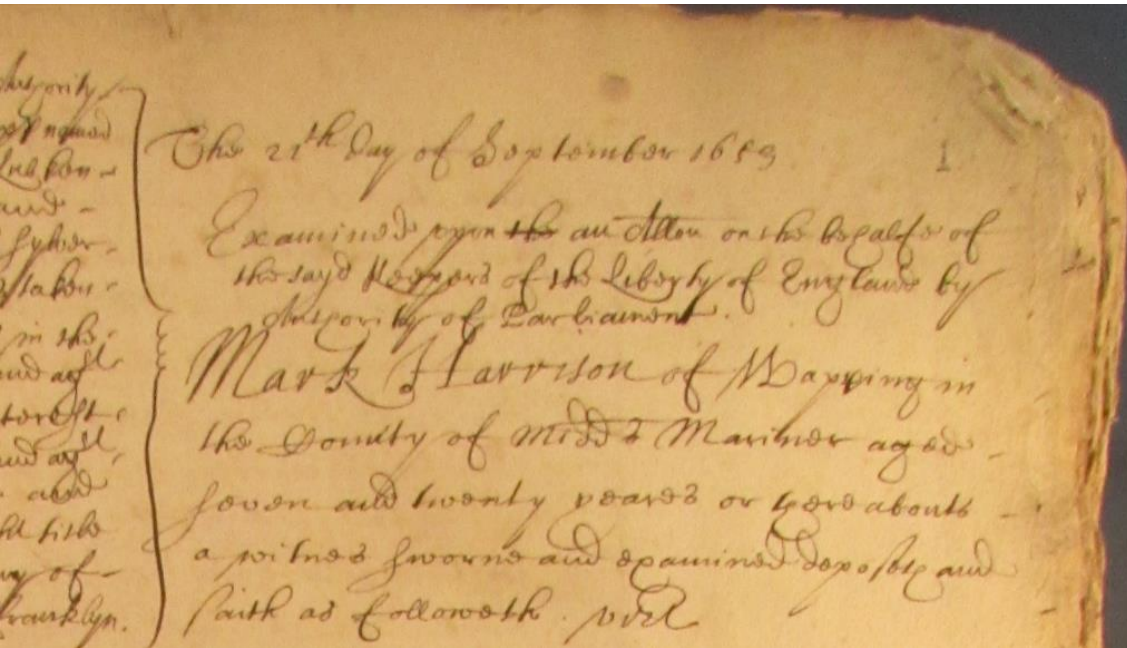 Authority
named
Lubken-
and-
Sylver-
taken-
in the-
and agt
terest-
and agt
and
title
of-
Francklyn.
The 21th day of September 1653
1
Examined upon the an Allon on the behalfe of
the sayd Keepers of the Liberty of England by
Authority of Parliament.
Mark Harrison of Wapping in
the County of Midd Mariner aged -
seven and twenty yeares or thereabouts -
a witnes sworne and examined deposeth and
saith as followeth. vizt